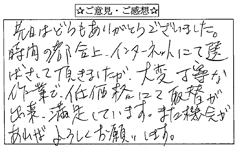 ☆ご意見・ご感想☆
先日はどうもありがとうございました。
時間の都合上、インターネットにて選
ばさして頂きましたが、大変丁寧な
作業で、低価格にて取替が
出来、満足しています。また機会が
あれば よろしくお願いします。